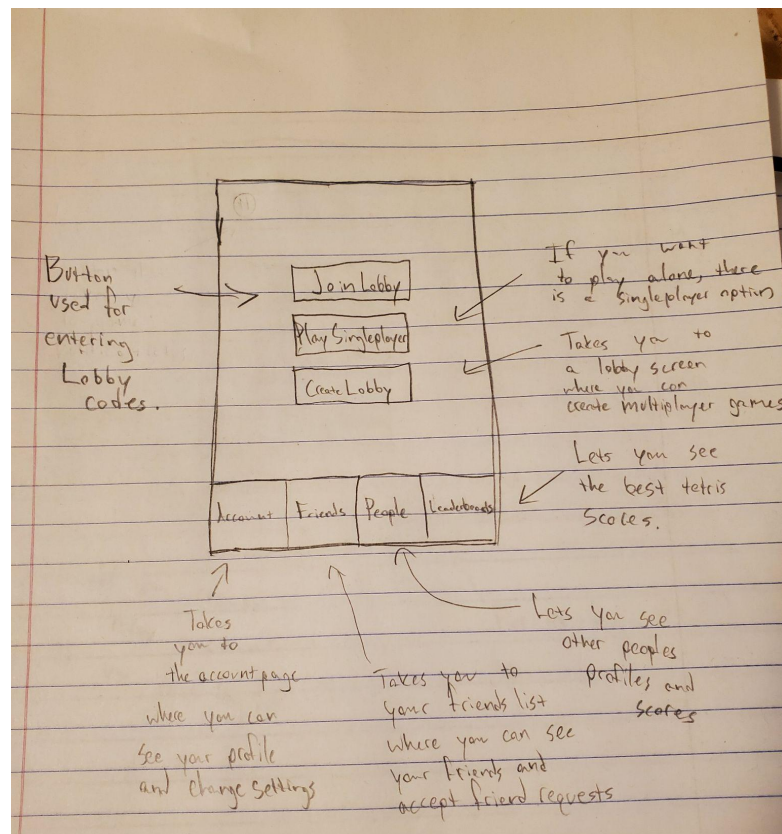 Button
used for
entering
Lobby
codes.
Join Lobby
Play Singleplayer
Create Lobby
If you want
to play alone, there
is a singleplayer option
Takes you to
a lobby screen
where you can
create multiplayer games
Lets you see
the best tetris
scores.
Account
Friends
People
Leaderboards
Takes
you to
the account page
where you can
see your profile
and change settings
Takes you to
your friends list
where you can see
your friends and
accept friend requests
Lets you see
other peoples
profiles and
scores